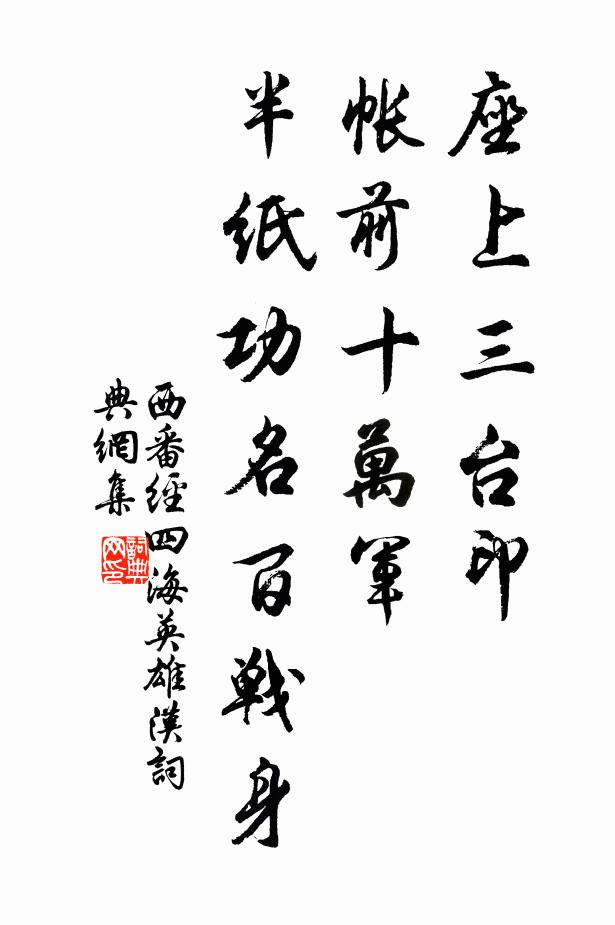 座上三台印
帳前十萬軍
半紙功名百戰身
西番經四海英雄漢詞
典網集
詞典
网印